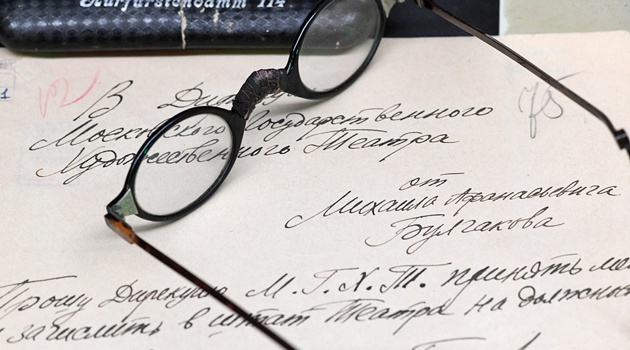 Kurfürstendamm 114
75
В
Московского Государственного
Художественного Театра
от
Михаила Афанасьевича
Булгакова
Прошу Дирекцию М. Г. Х. Т. принять
и зачислить в штат Театра на